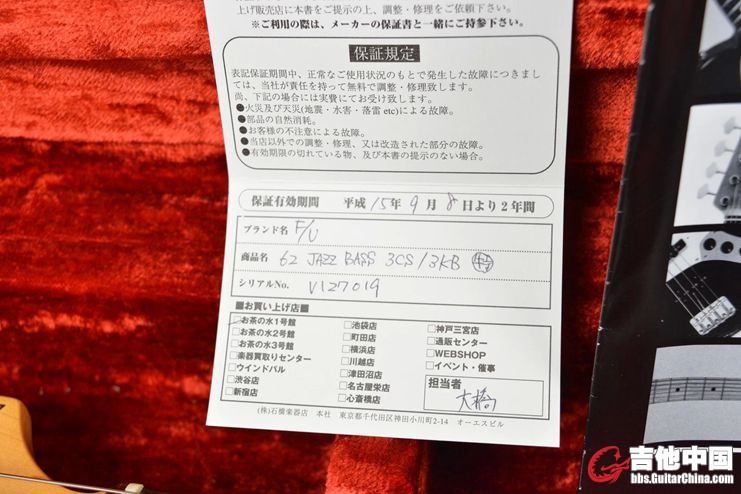 上げ販売店に本書をご提示の上、調整・修理をご依頼下さい。
※ご利用の際は、メーカーの保証書と一緒にご持参下さい。
保証規定
表記保証期間中、正常なご使用状況のもとで発生した故障につきまし
ては、当社が責任を持って無料で調整・修理致します。
尚、下記の場合には実費にてお受け致します。
●火災及び天災(地震・水害・落雷 etc)による故障。
●部品の自然消耗。
●お客様の不注意による故障。
●当店以外での調整・修理、又は改造された部分の故障。
●有効期限の切れている物、及び本書の提示のない場合。
保証有効期間 平成 15年 9月 8日より2年間
ブランド名 F/U
商品名 62 JAZZ BASS 3CS/3KB
シリアルNo. V127019
■お買い上げ店■
□お茶の水1号館
□お茶の水2号館
□お茶の水3号館
□楽器買取りセンター
□ウインドパル
□渋谷店
□新宿店
□池袋店
□町田店
□横浜店
□川越店
□津田沼店
□名古屋栄店
□心斎橋店
□神戸三宮店
□通販センター
□WEBSHOP
□イベント・催事
担当者
大橋
(株)石橋楽器店 本社 東京都千代田区神田小川町2-14 オーエスビル
吉他中国
bbs.GuitarChina.com